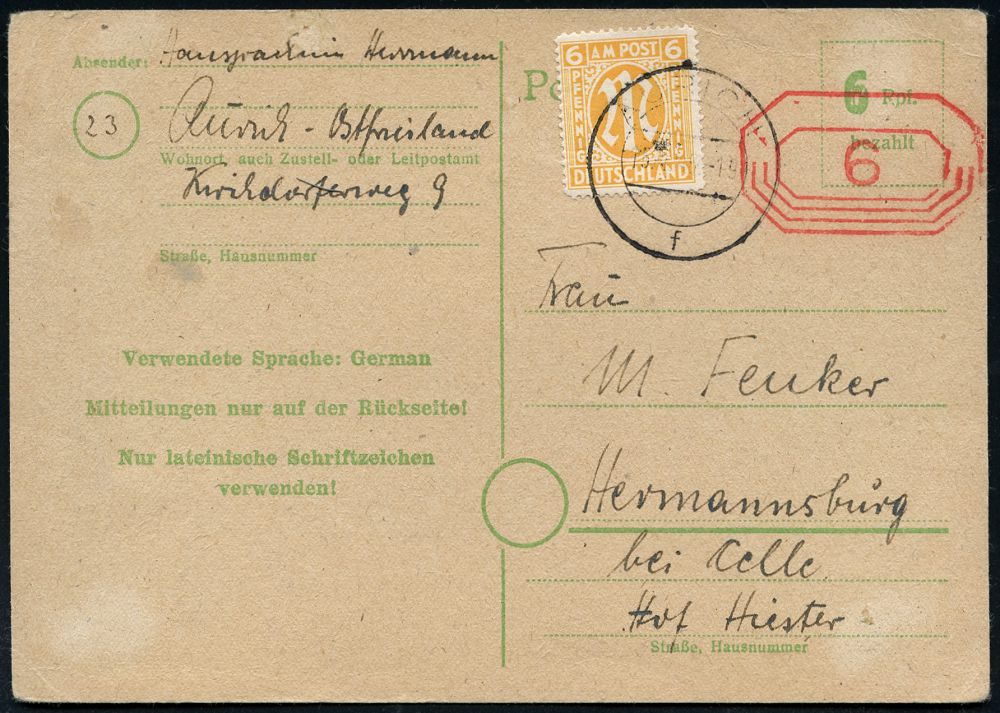 Absender: Hansjoachim Herrmann
23
Aurich - Ostfriesland
Wohnort, auch Zustell- oder Leitpostamt
Kirchdorferweg 9
Straße, Hausnummer
Verwendete Sprache: German
Mitteilungen nur auf der Rückseite!
Nur lateinische Schriftzeichen
verwenden!
6 AM POST 6
PFENNIG PFENNIG
DEUTSCHLAND
f
6 Rpf.
bezahlt
6
Frau
M. Fenker
Hermannsburg
bei Celle
Hof Hiester
Straße, Hausnummer